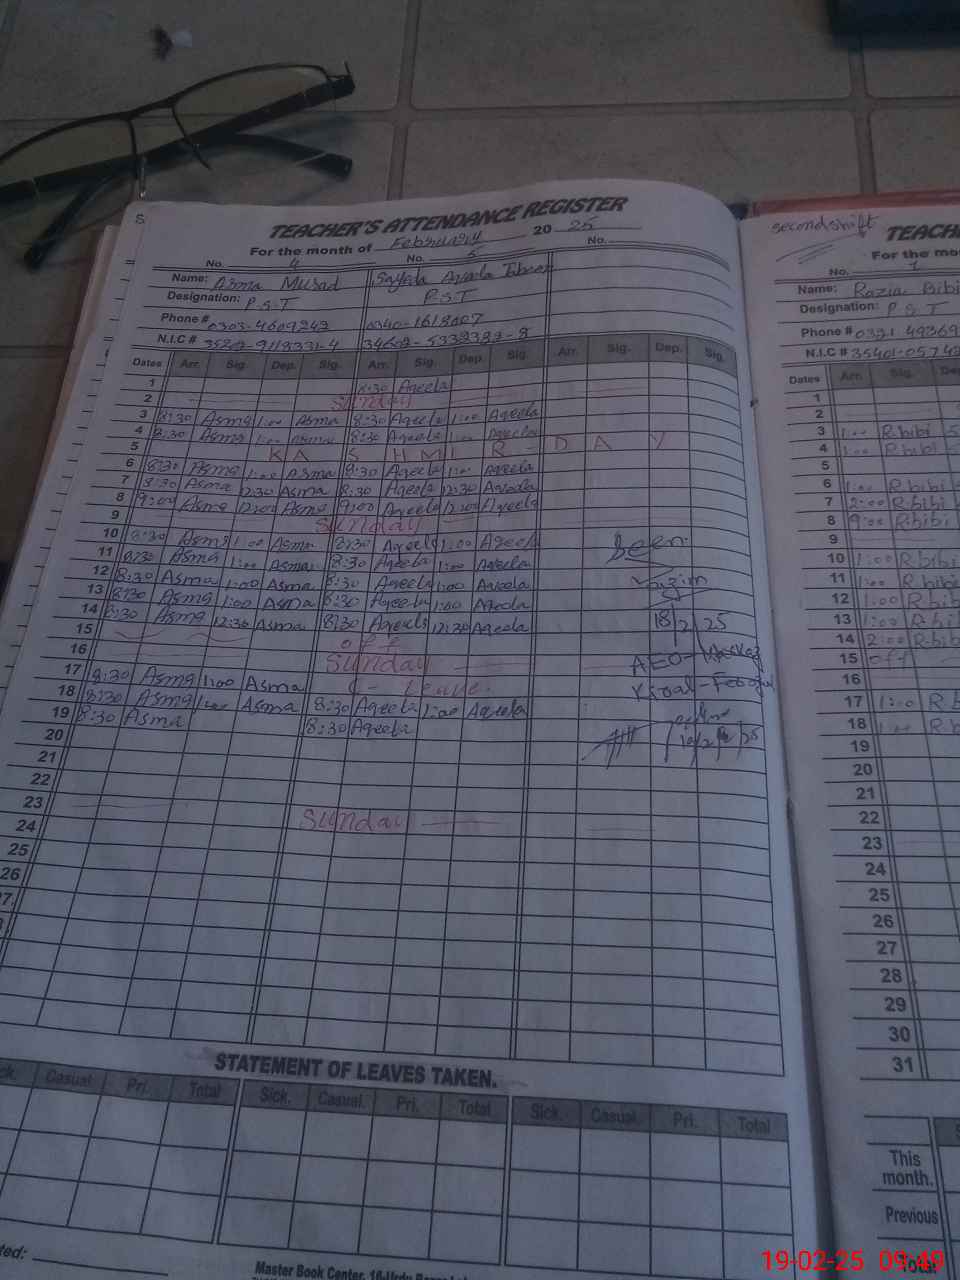 S
TEACHER'S ATTENDANCE REGISTER
For the month of February 2025
No. 4 No. 5 No.
Name: Asma Murad Sayeda
Designation: P.S.T P.S.T
Phone # 0303-4609242
N.I.C #
Dates Arr. Sig. Dep. Sig. Arr. Sig. Dep. Sig. Arr. Sig. Dep. Sig.
1 8:30 Aqeela
2 Sunday
3 8:30 Asma 1:00 Asma 8:30 Aqeela 1:00 Aqeela
4 8:30 Asma 1:00 Asma 8:30 Aqeela 1:00 Aqeela
5 KASHMIR - DAY
6 8:30 Asma 1:00 Asma 8:30 Aqeela 1:00 Aqeela
7 8:30 Asma 12:30 Asma 8:30 Aqeela 12:30 Aqeela
8 9:00 Asma 12:00 Asma 9:00 Aqeela 12:00 Aqeela
9 Sunday
10 8:30 Asma 1:00 Asma 8:30 Aqeela 1:00 Aqeela
11 8:30 Asma 1:00 Asma 8:30 Aqeela 1:00 Aqeela
12 8:30 Asma 1:00 Asma 8:30 Aqeela 1:00 Aqeela
13 8:30 Asma 1:00 Asma 8:30 Aqeela 1:00 Aqeela
14 8:30 Asma 12:30 Asma 8:30 Aqeela 12:30 Aqeela
15 off
16 Sunday
17 8:30 Asma 1:00 Asma C - Leave.
18 8:30 Asma 1:00 Asma 8:30 Aqeela 1:00 Aqeela
19 8:30 Asma 8:30 Aqeela
20
21
22
23 Sunday
24
25
26
Seen
18/2/25
AEO-
STATEMENT OF LEAVES TAKEN.
Casual Pri. Total Sick. Casual. Pri. Total Sick. Casual. Pri. Total
Master Book Center,
second shift
For the
No. 1
Name: Razia Bibi
Designation: P.S.T
Phone # 0331 49369
N.I.C # 35401-0574
Dates Arr. Sig.
1
2
3 1:00 R.bibi
4 1:00 R.bibi
5
6 1:00 R.bibi
7 2:00 R.bibi
8 9:00 R.bibi
9
10 1:00 R.bibi
11 1:00 R.bibi
12 1:00 R.bibi
13 1:00 R.bibi
14 2:00 R.bibi
15 off
16
17 1:00 R.b
18 1:00 R.b
19
20
21
22
23
24
25
26
27
28
29
30
31
This
month.
Previous
Total
19-02-25 09:49